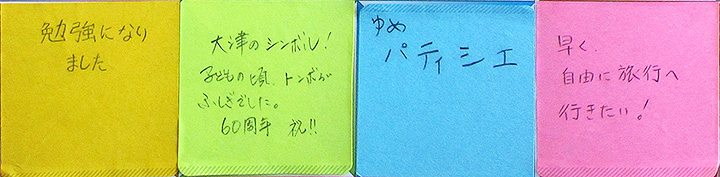 勉強になり
ました
大津のシンボル!
子どもの頃、トンボが
ふしぎでした。
60周年 祝!!
ゆめ
パティシエ
早く、
自由に旅行へ
行きたい!